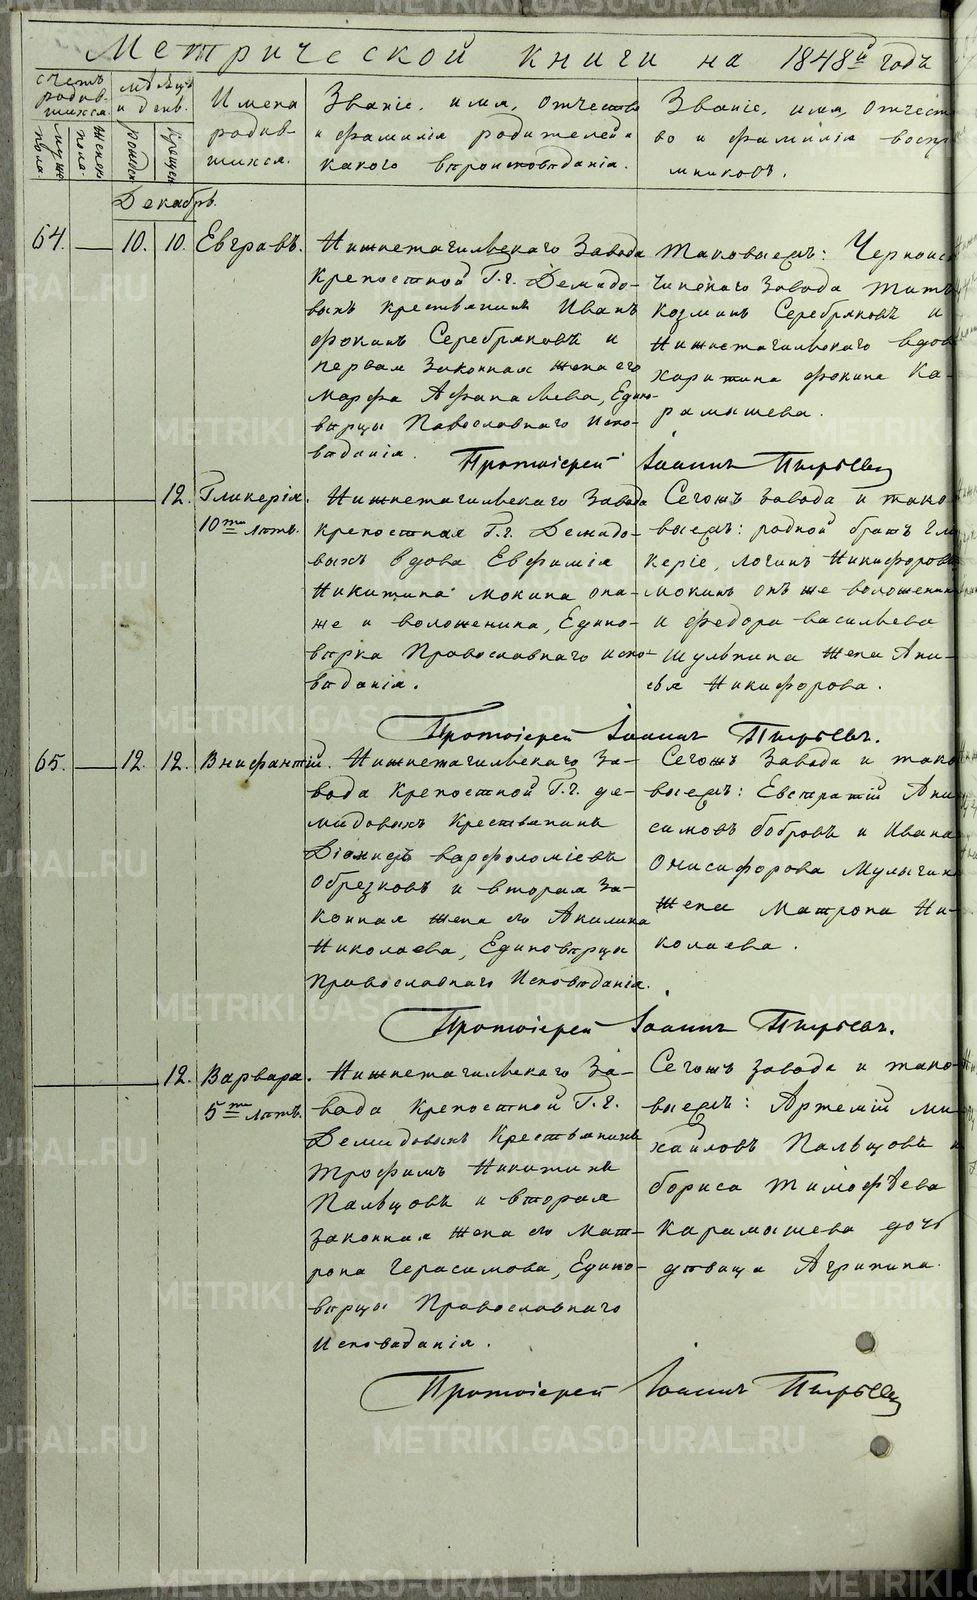 Метрической книги на 1848й годъ
счетъ родив-шихся.
мужеска пола
женска пола
мѣсяцъ и день.
рожден
крещен
Имена
родив-
шихся.
Званіе, имя, отчество
и фамилія родителей и
какого вѣроисповѣданія.
Званіе, имя, отчест
во и фамилія воспр
мниковъ.
Декабрь
64. 10. 10. Евграфъ.
Нижнетагильскаго Завода
крепостной Г.г. Демидо-
выхъ крестьянинъ Иванъ
Фокинъ Серебряковъ и
первая законная жена его
Марфа Афанасьева, Едино-
вѣрцы Павославнаго Испо-
вѣданія.
Таковыежъ: Черноис
чинскаго завода Титъ
Козминъ Серебряковъ и
Нижнетагильскаго вдов
Харитина Фокина Ка-
рамышева.
Протоіерей Іоаннъ Пырьевъ
12. Гликерія.
10ти лѣтъ.
Нижнетагильскаго Завода
крепостная Г.г. Демидо-
выхъ вдова Евфимія
Никитина Мокина она-
же и воложенина, Едино-
вѣрка Православнаго испо-
вѣданія.
Сегожъ завода и тако
выежъ: родной братъ Гли
керіе, Логинъ Никифоровъ
Мокинъ онъ же воложенин
и Федора васильева
Шульпина жена Ани-
сья Никифорова.
Протоіерей Іоаннъ Пырьевъ.
65. 12. 12. Внифантій.
Нижнетагильскаго За-
вода крепостной Г.г. де-
мидовыхъ Крестьянинъ
Діонисъ варфоломіевъ
Обрезковъ и вторая за-
конная жена его Акилина
Николаева, Единовѣрцы
Православнаго Исповѣданія.
Сегожъ Завода и тако
выежъ: Евстратій Ани
симовъ бобровъ и Ивана
Онисифорова Мулычин
жена Матрона Ни-
колаева.
Протоіерей Іоаннъ Пырьевъ.
12. Варвара.
5ти лѣтъ.
Нижнетагильскаго За-
вода Крепостной Г.г.
Демидовыхъ Крестьянинъ
Трофимъ Никитинъ
Пальцовъ и вторая
законная жена его Мат-
рона Герасимова, Едино-
вѣрцы Православнаго
Исповѣданія.
Сегожъ завода и тако-
выежъ: Артемій ми
хайловъ Пальцовъ и
бориса Тимофѣева
Карамышева дочь
дѣвица Агрипина.
Протоіерей Іоаннъ Пырьевъ
METRIKI.GASO-URAL.RU